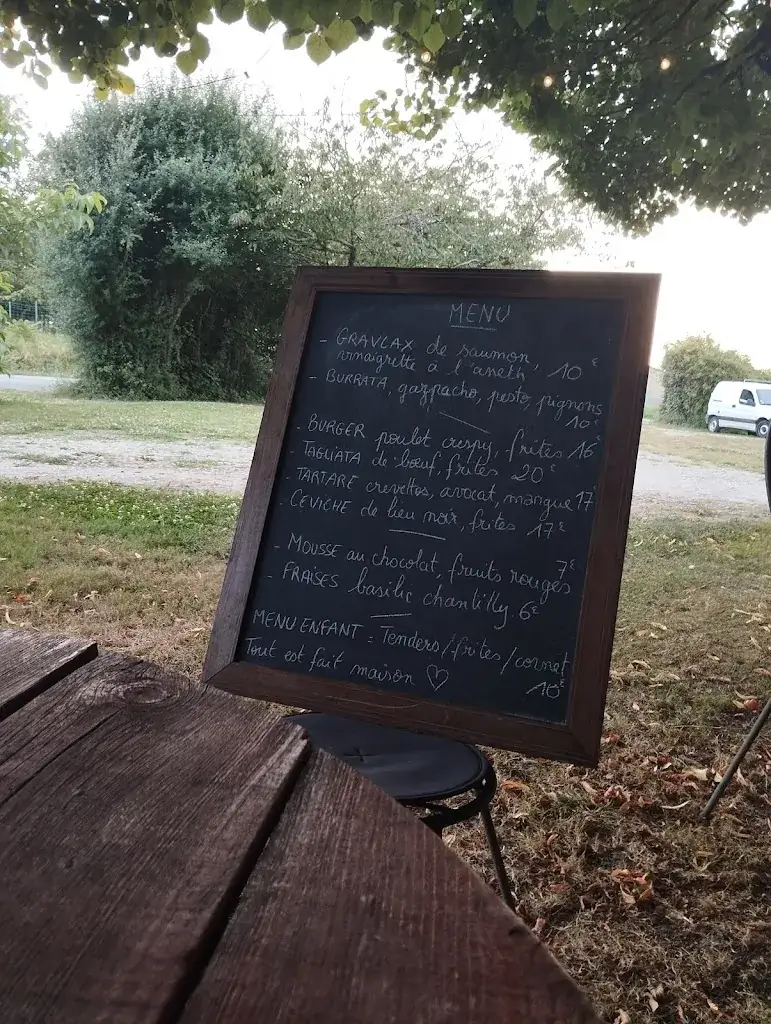 MENU
- GRAVLAX de saumon,
vinaigrette à l'aneth 10€
- BURRATA, gazpacho, pesto, pignons
10€
- BURGER poulet crispy, frites 16€
- TAGLIATA de bœuf, frites 20€
- TARTARE crevettes, avocat, mangue 17€
- CEVICHE de lieu noir, frites 17€
- MOUSSE au chocolat, fruits rouges 7€
- FRAISES basilic chantilly 6€
MENU ENFANT : Tenders/frites/cornet
10€
Tout est fait maison ♡